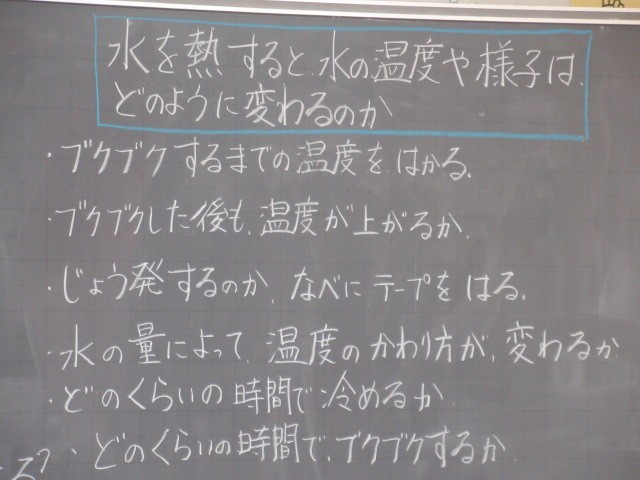 水を熱すると、水の温度や様子は、
どのように変わるのか
・ブクブクするまでの温度を、はかる。
・ブクブクした後も、温度が上がるか。
・じょう発するのか、なべにテープをはる。
・水の量によって、温度のかわり方が、変わるか
・どのくらいの時間で冷めるか。
・どのくらいの時間で、ブクブクするか。